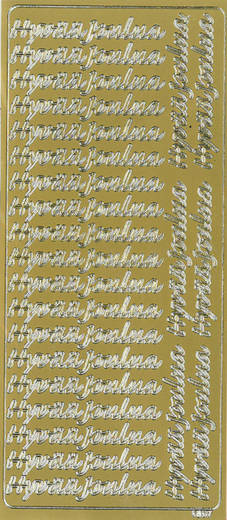 Hyvää joulua
Hyvää joulua
Hyvää joulua
Hyvää joulua
Hyvää joulua
Hyvää joulua
Hyvää joulua
Hyvää joulua
Hyvää joulua
Hyvää joulua
Hyvää joulua
Hyvää joulua
Hyvää joulua
Hyvää joulua
Hyvää joulua
Hyvää joulua
Hyvää joulua
Hyvää joulua
Hyvää joulua
Hyvää Joulua
Hyvää Joulua
Hyvää Joulua
Hyvää Joulua
Hyvää Joulua
Hyvää Joulua